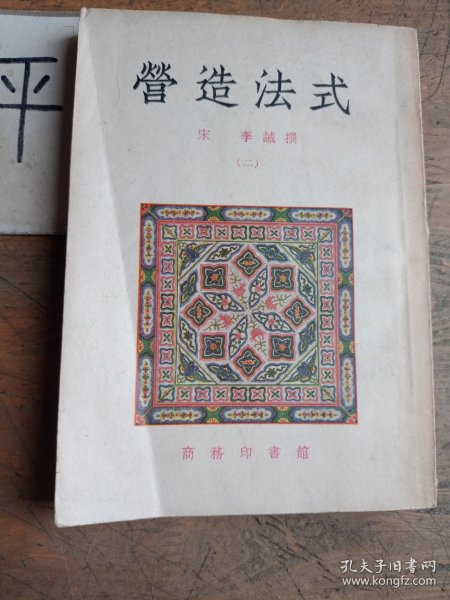 平
營造法式
宋 李誡撰
(二)
商務印書館
孔夫子旧书网
www.kongfz.com